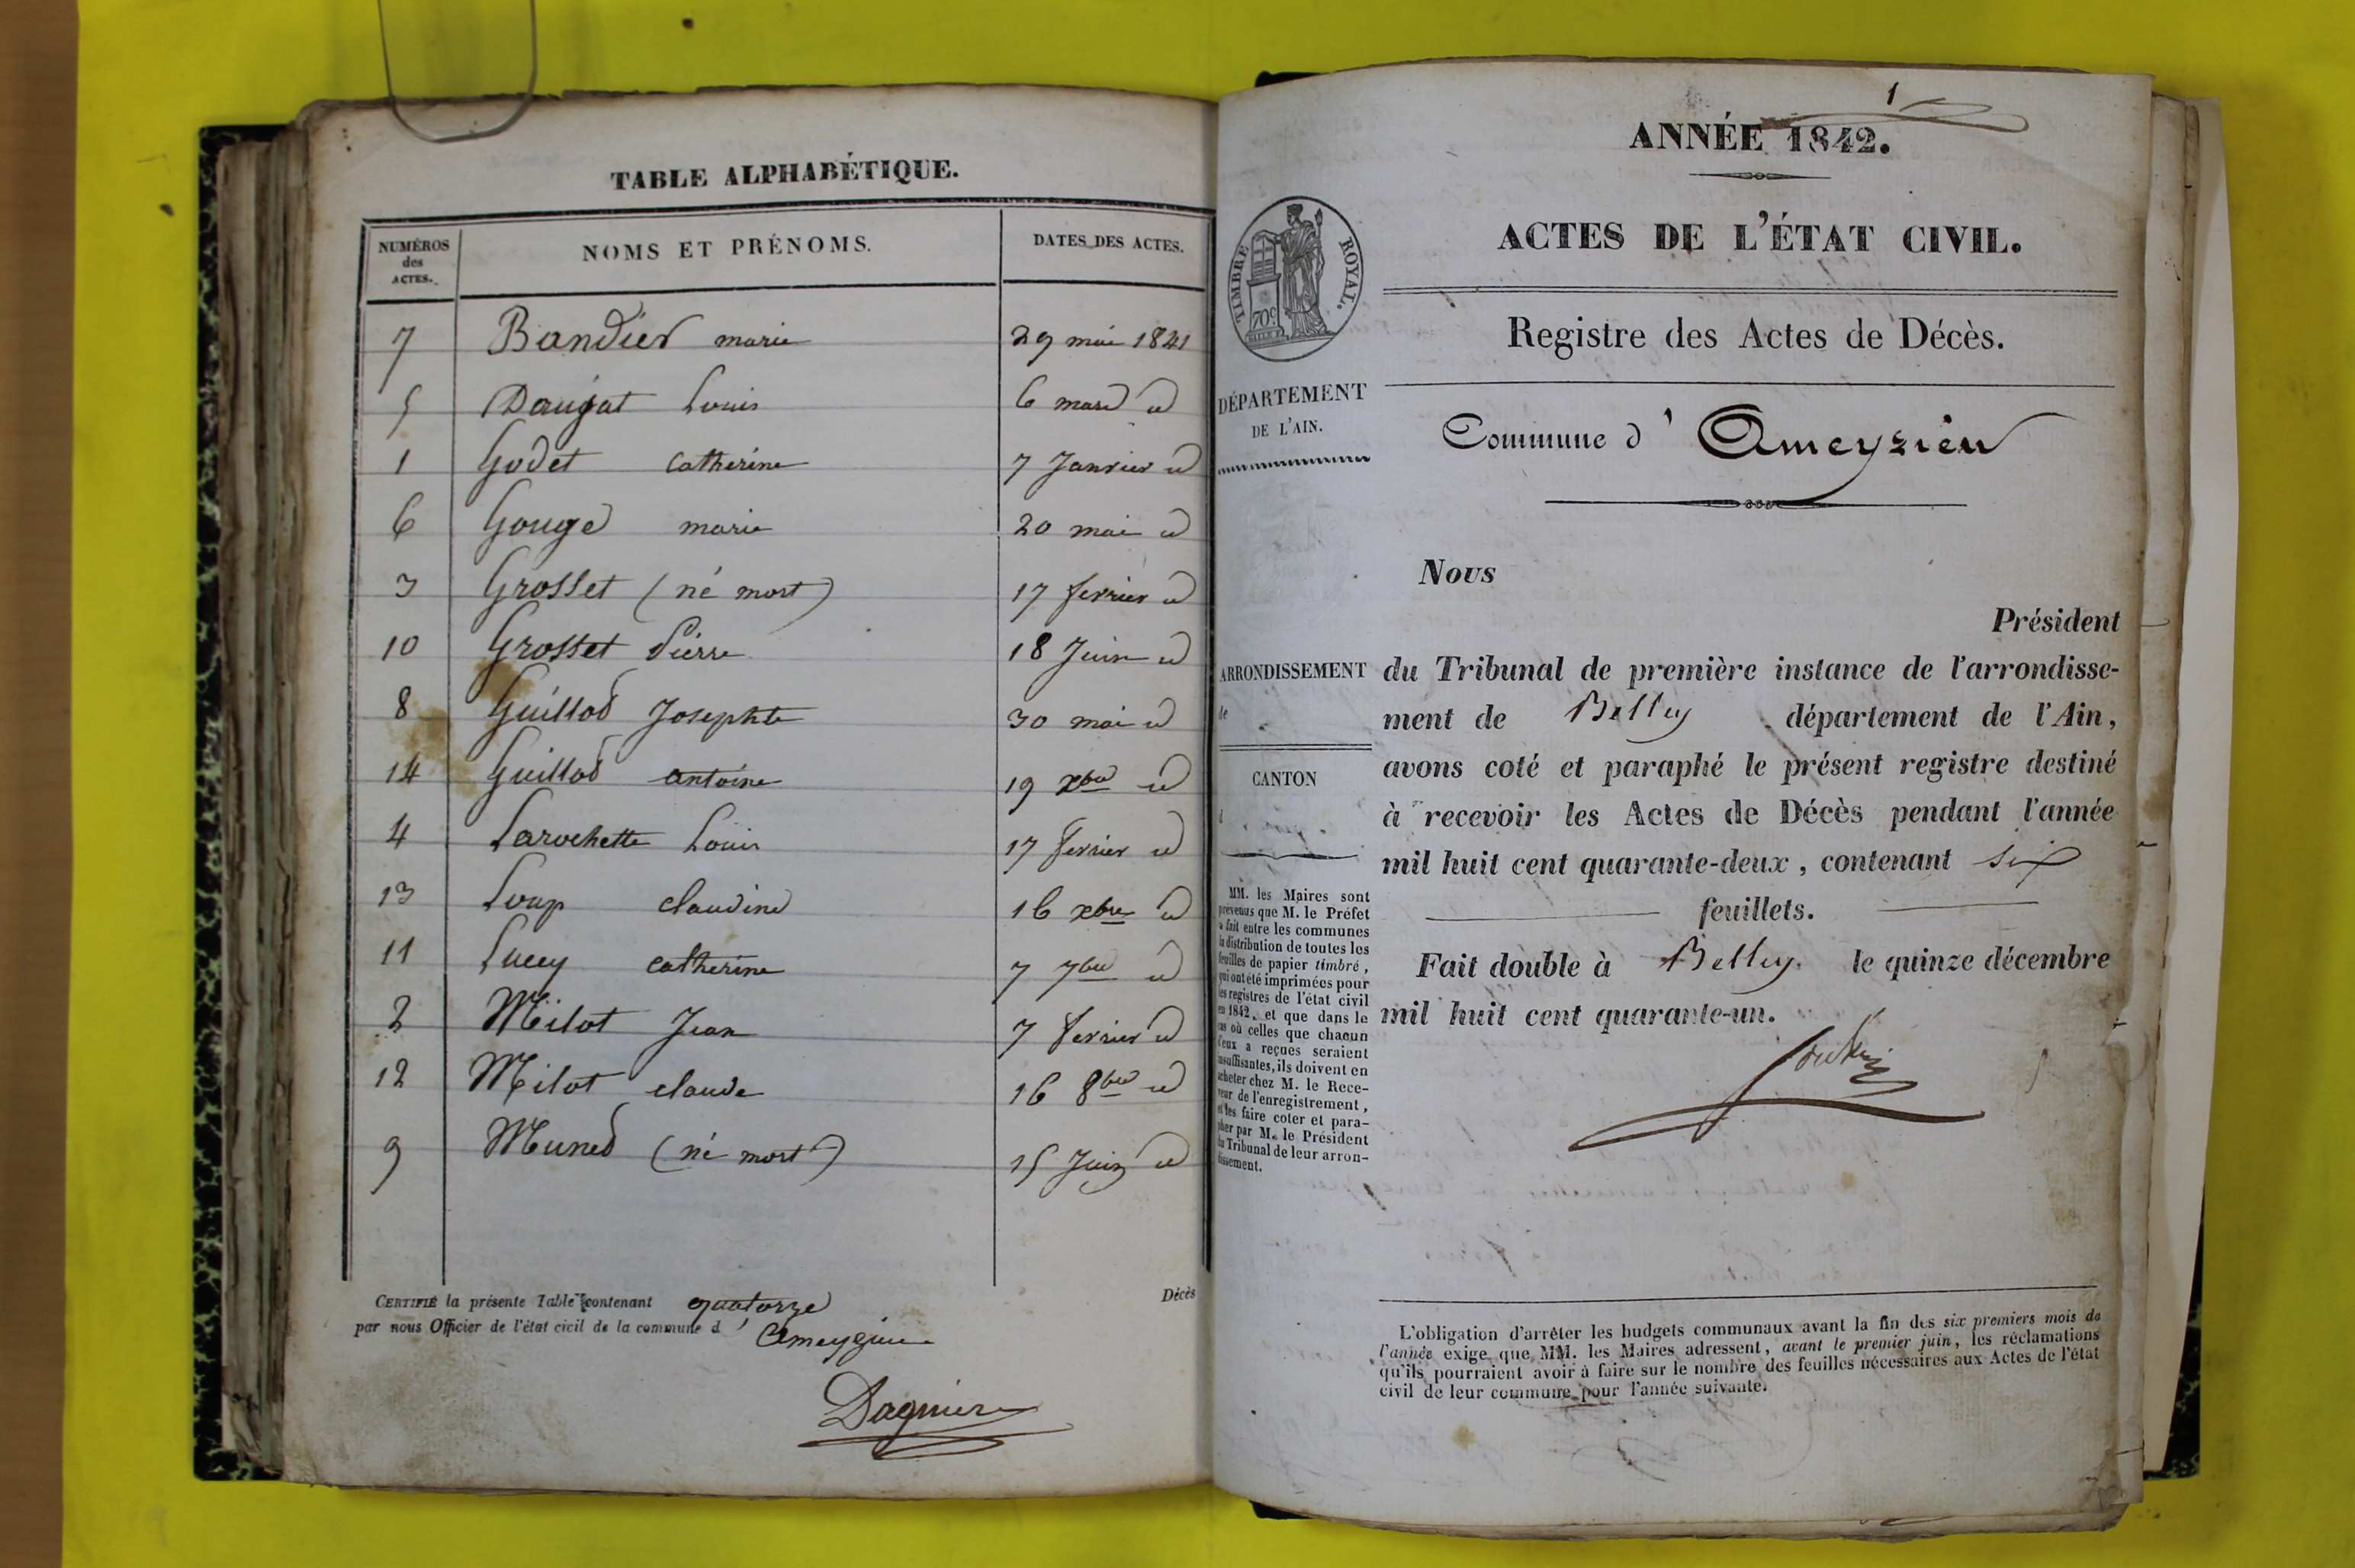 TABLE ALPHABÉTIQUE.
NUMÉROS des ACTES. NOMS ET PRÉNOMS. DATES DES ACTES.
7 Bandier marie 29 mai 1841
5 Daujat Louis 6 mars id
1 Godet Catherine 7 Janvier id
6 Gouge marie 20 mai id
3 Grosset (né mort) 17 fevrier id
10 Grosset Pierre 18 Juin id
8 Guillod Josephte 30 mai id
14 Guillod antoine 19 xbre id
4 Larochette Louis 17 fevrier id
13 Loup claudine 16 xbre id
11 Lucey catherine 7 7bre id
2 Milot Jean 7 fevrier id
12 Milot claude 16 8bre id
9 Muned (né mort) 15 Juin id
CERTIFIÉ la présente Table contenant quatorze Décès
par nous Officier de l'état civil de la commune d' Ameyzieu
1
ANNÉE 1842.
ACTES DE L'ÉTAT CIVIL.
TIMBRE ROYAL.
70c
Registre des Actes de Décès.
DÉPARTEMENT
DE L'AIN.
Commune d' Ameyzieu
Nous
Président
ARRONDISSEMENT
de
du Tribunal de première instance de l'arrondisse-
ment de Belley département de l'Ain,
CANTON
avons coté et paraphé le présent registre destiné
à recevoir les Actes de Décès pendant l'année
mil huit cent quarante-deux, contenant six
feuillets.
Fait double à Belley. le quinze décembre
mil huit cent quarante-un.
MM. les Maires sont
prévenus que M. le Préfet
a fait entre les communes
la distribution de toutes les
feuilles de papier timbré,
qui ont été imprimées pour
les registres de l'état civil
en 1842, et que dans le
cas où celles que chacun
d'eux a reçues seraient
insuffisantes, ils doivent en
acheter chez M. le Rece-
veur de l'enregistrement,
et les faire coter et para-
pher par M. le Président
du Tribunal de leur arron-
dissement.
L'obligation d'arrêter les budgets communaux avant la fin des six premiers mois de
l'année exige que MM. les Maires adressent, avant le premier juin, les réclamations
qu'ils pourraient avoir à faire sur le nombre des feuilles nécessaires aux Actes de l'état
civil de leur commune pour l'année suivante.